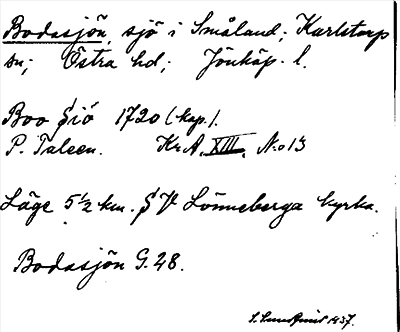 Bodasjön, sjö i Småland; Karlstorp
sn; Östra hd; Jönköp. l.
Boo Siö 1720 (kop.).
P. Taleen. Kr.A. XIII. No 13
Läge 5 1/2 km. SV Lönneberga kyrka.
Bodasjön G. 28.
S. Lundquist 1937.